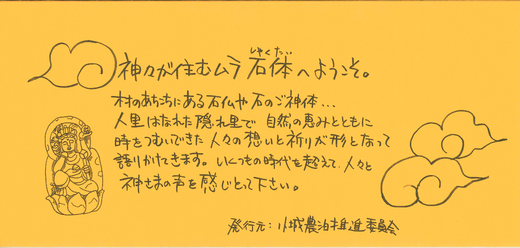 しゃくたい
神々が住むムラ 石体へようこそ。
村のあちこちにある石仏や石のご神体...
人里はなれた隠れ里で 自然の恵みとともに
時をつむいできた人々の想いと祈りが形となって
語りかけてきます。いくつもの時代を超えて、人々と
神さまの声を感じとって下さい。
発行元：小城農泊推進委員会